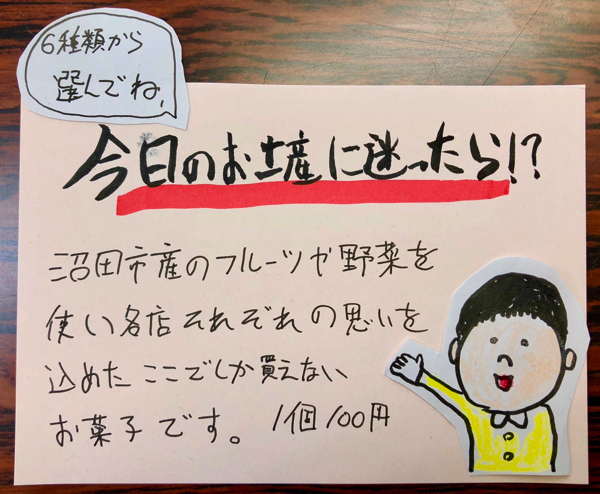 6種類から
選んでね、
今日のお土産に迷ったら!?
沼田市産のフルーツや野菜を
使い各店それぞれの思いを
込めたここでしか買えない
お菓子です。1個100円